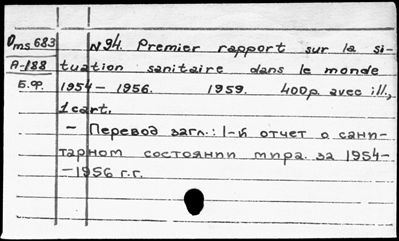 Oms 683 N 94. Premier rapport sur la si-
A-188 tuation sanitaire dans le monde
Б.Ф. 1954 - 1956. 1959. 400p. avec ill.,
1 cart.
- Перевод загл.: I-й отчет о сани-
тарном состоянии мира. за 1954-
-1956 г.г.